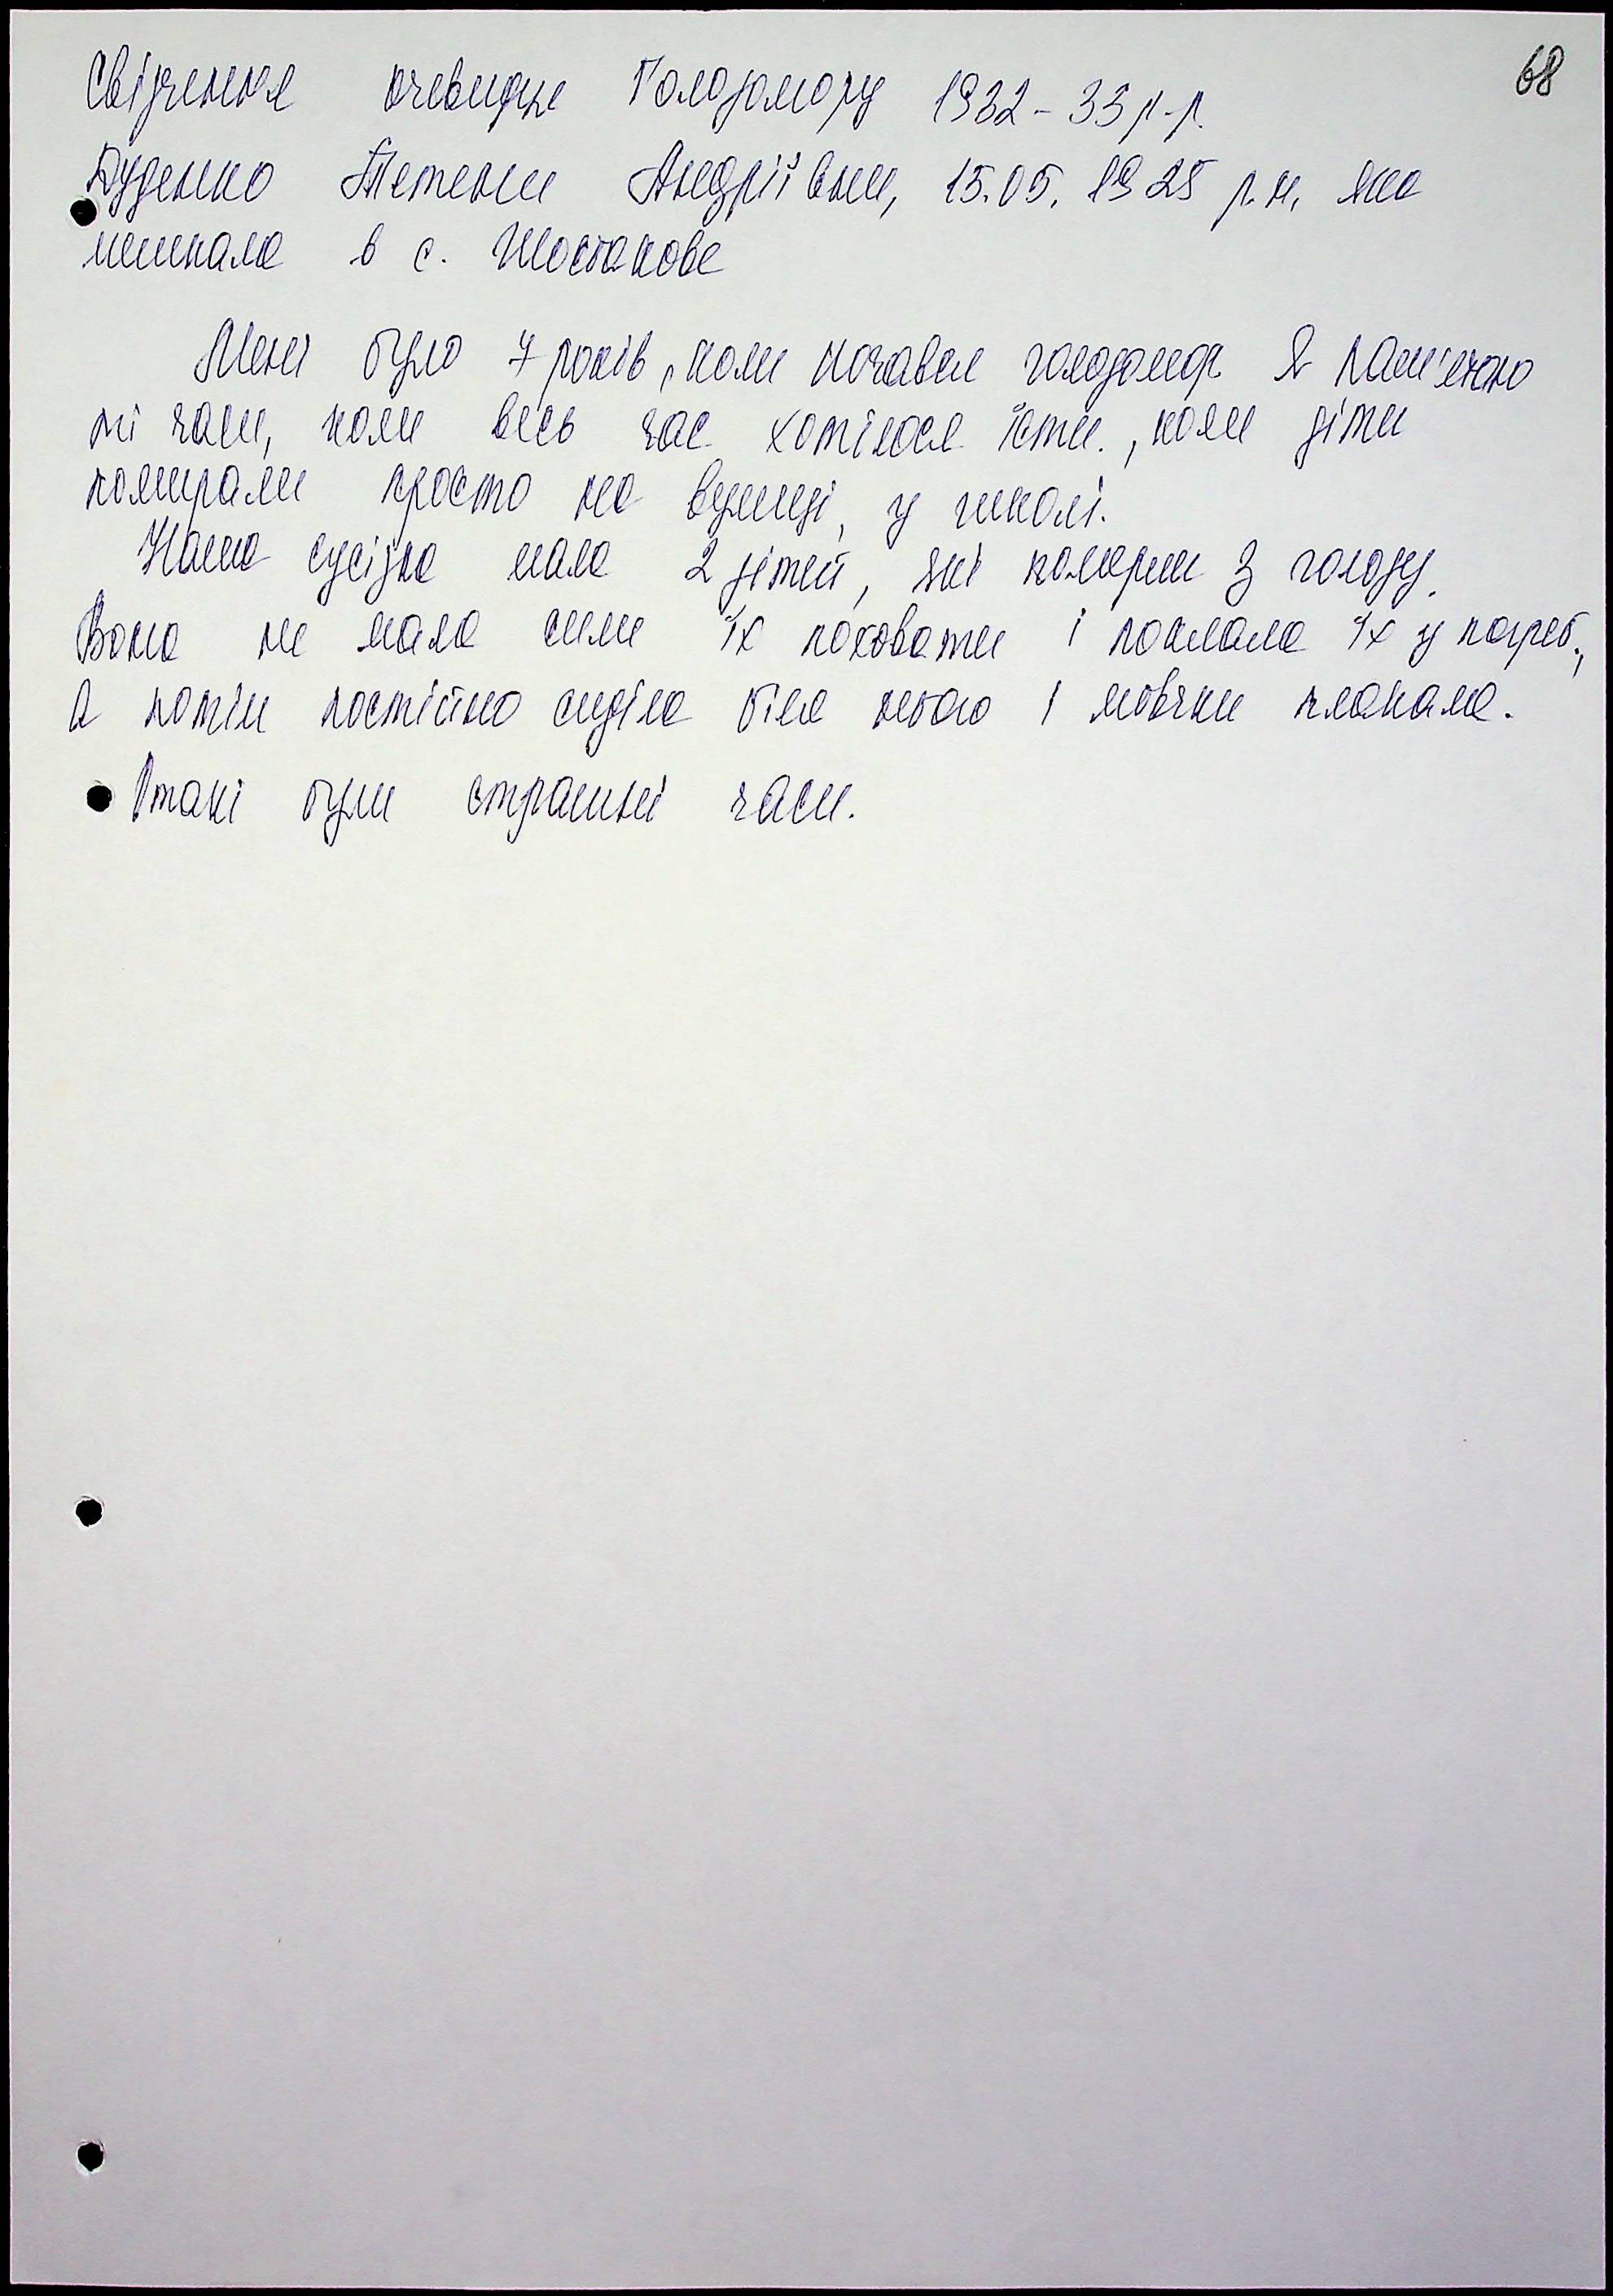 68
Свідчення очевидця Голодомору 1932-33 р.-р.
Дуденко Тетяни Андріївни, 15.05.1925 р.н. яка
мешкала в с. Шостакове
Мені було 7 років, коли почався голодомор Я пам'ятаю
ті часи, коли весь час хотілося їсти., коли діти
помирали просто на вулиці, у школі.
Наша сусідка мала 2 дітей, які померли з голоду.
Вона не мала сили їх поховати і поклала їх у погреб.,
а потім постійно сиділа біля нього і мовчки плакала.
Отакі були страшні часи.